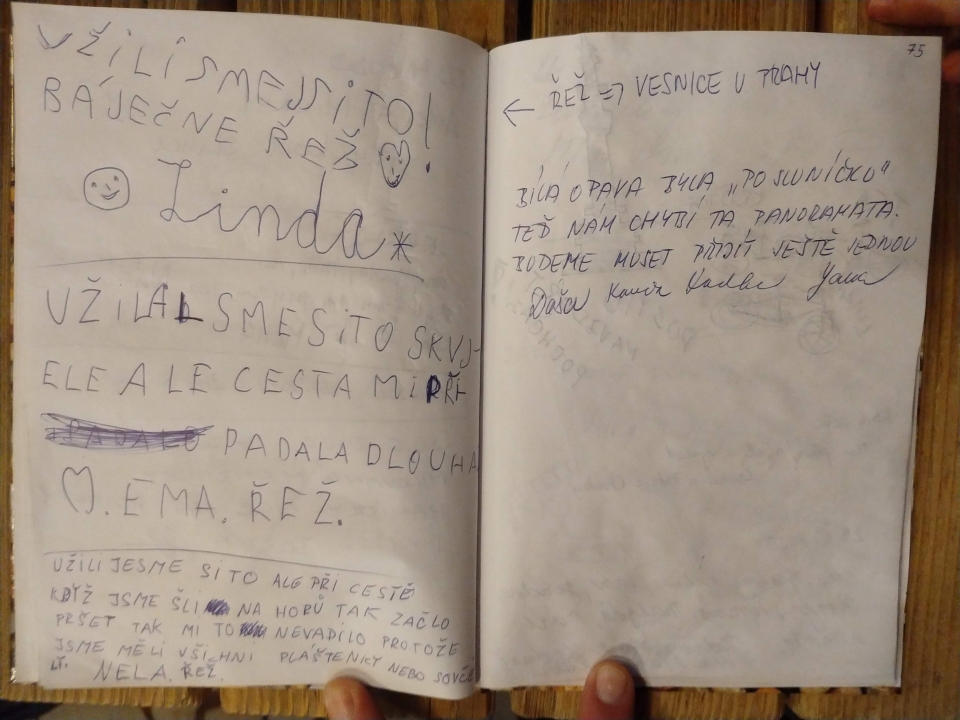 UŽILI SMEJSiTO!
BÁJEČNE ŘEŽ
Linda
UŽILAL SMESiTO SKVJ-
ELE ALE CESTA Mi PŘI
PADALA DLOUHA
. EMA. ŘEŽ.
UŽILI JESME SI TO ALE PŘI CESTĚ
KDYŽ JSME ŠLI NA HORŮ TAK ZAČLO
PRŠET TAK MI TO NEVADILO PROTOŽE
JSME MĚLI VŠICHNI PLÁŠTENKY NEBO
NELA. ŘEŽ.
75
← ŘEŽ => VESNICE U PRAHY
BÍLÁ OPAVA BYLA „PO SLUNÍČKU“
TEĎ NÁM CHYBÍ TA PANORAMATA.
BUDEME MUSET PŘIJÍT JEŠTĚ JEDNOU
Dáša Jana